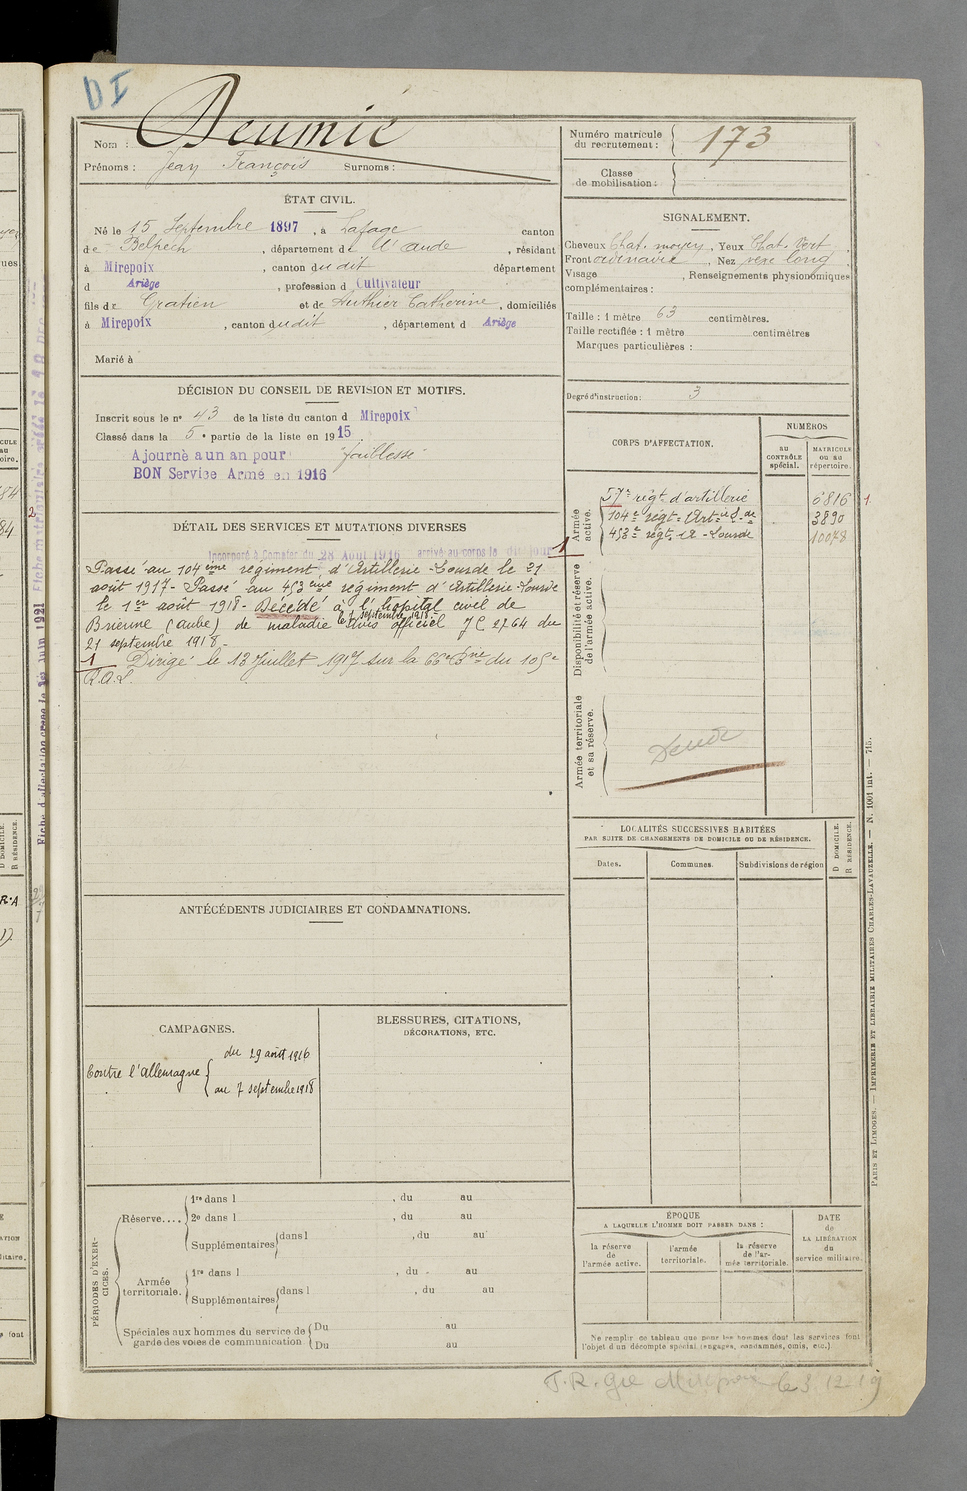 DI
Nom : Deumié
Prénoms : Jean François Surnoms :
Numéro matricule du recrutement : 173
Classe de mobilisation :
ÉTAT CIVIL.
Né le 15 Septembre 1897, à Lafage canton
de Belpech, département de l'Aude, résidant
à Mirepoix, canton dudit département
d Ariège, profession d Cultivateur
fils de Gratien et de Authier Catherine, domiciliés
à Mirepoix, canton dudit, département d Ariège
Marié à
SIGNALEMENT.
Cheveux Chat. moyen, Yeux Chat. Vert
Front ordinaire, Nez vexe long,
Visage , Renseignements physionomiques
complémentaires :
Taille : 1 mètre 63 centimètres.
Taille rectifiée : 1 mètre centimètres
Marques particulières :
Degré d'instruction : 3
DÉCISION DU CONSEIL DE REVISION ET MOTIFS.
Inscrit sous le n° 43 de la liste du canton d Mirepoix
Classé dans la 5e partie de la liste en 1915
Ajourné a un an pour faiblesse
BON Service Armé en 1916
DÉTAIL DES SERVICES ET MUTATIONS DIVERSES
Incorporé à Compter du 28 Août 1916 arrivé au corps le dit jour
Passé au 104ème régiment d'Artillerie-Lourde le 21
août 1917- Passé au 453ème régiment d'Artillerie-Lourde
le 1er août 1918- Décédé à l'hopital civil de
Brienne (aube) de maladie le 7 septembre 1918- Avis officiel JC 2764 du
21 septembre 1918-
1 Dirigé le 13 Juillet 1917 sur la 66e Brie du 105e
R.A.L.
CORPS D'AFFECTATION.
NUMÉROS
au CONTRÔLE spécial.
MATRICULE ou au répertoire.
Armée active.
57e régt d'artillerie 6816 1
104e régt Artie L.de 3890
453e régt A-Lourde 10078
1
Disponibilité et réserve de l'armée active.
Armée territoriale et sa réserve.
LOCALITÉS SUCCESSIVES HABITÉES
PAR SUITE DE CHANGEMENTS DE DOMICILE OU DE RÉSIDENCE.
Dates. Communes. Subdivisions de région
D DOMICILE.
R RÉSIDENCE.
ANTÉCÉDENTS JUDICIAIRES ET CONDAMNATIONS.
CAMPAGNES.
Contre l'allemagne { du 29 août 1916
au 7 septembre 1918
BLESSURES, CITATIONS,
DÉCORATIONS, ETC.
PÉRIODES D'EXERCICES.
Réserve.... 1re dans l , du au
2e dans l , du au
Supplémentaires dans l , du au
Armée territoriale. 1re dans l , du au
Supplémentaires dans l , du au
Spéciales aux hommes du service de garde des voies de communication. Du au
Du au
ÉPOQUE
A LAQUELLE L'HOMME DOIT PASSER DANS :
la réserve de l'armée active.
l'armée territoriale.
la réserve de l'armée territoriale.
DATE de LA LIBÉRATION du service militaire.
Ne remplir ce tableau que pour les hommes dont les services font
l'objet d'un décompte spécial (engagés, condamnés, omis, etc.)
PARIS ET LIMOGES. — IMPRIMERIE ET LIBRAIRIE MILITAIRES CHARLES-LAVAUZELLE. — N. 1001 int. — 715.